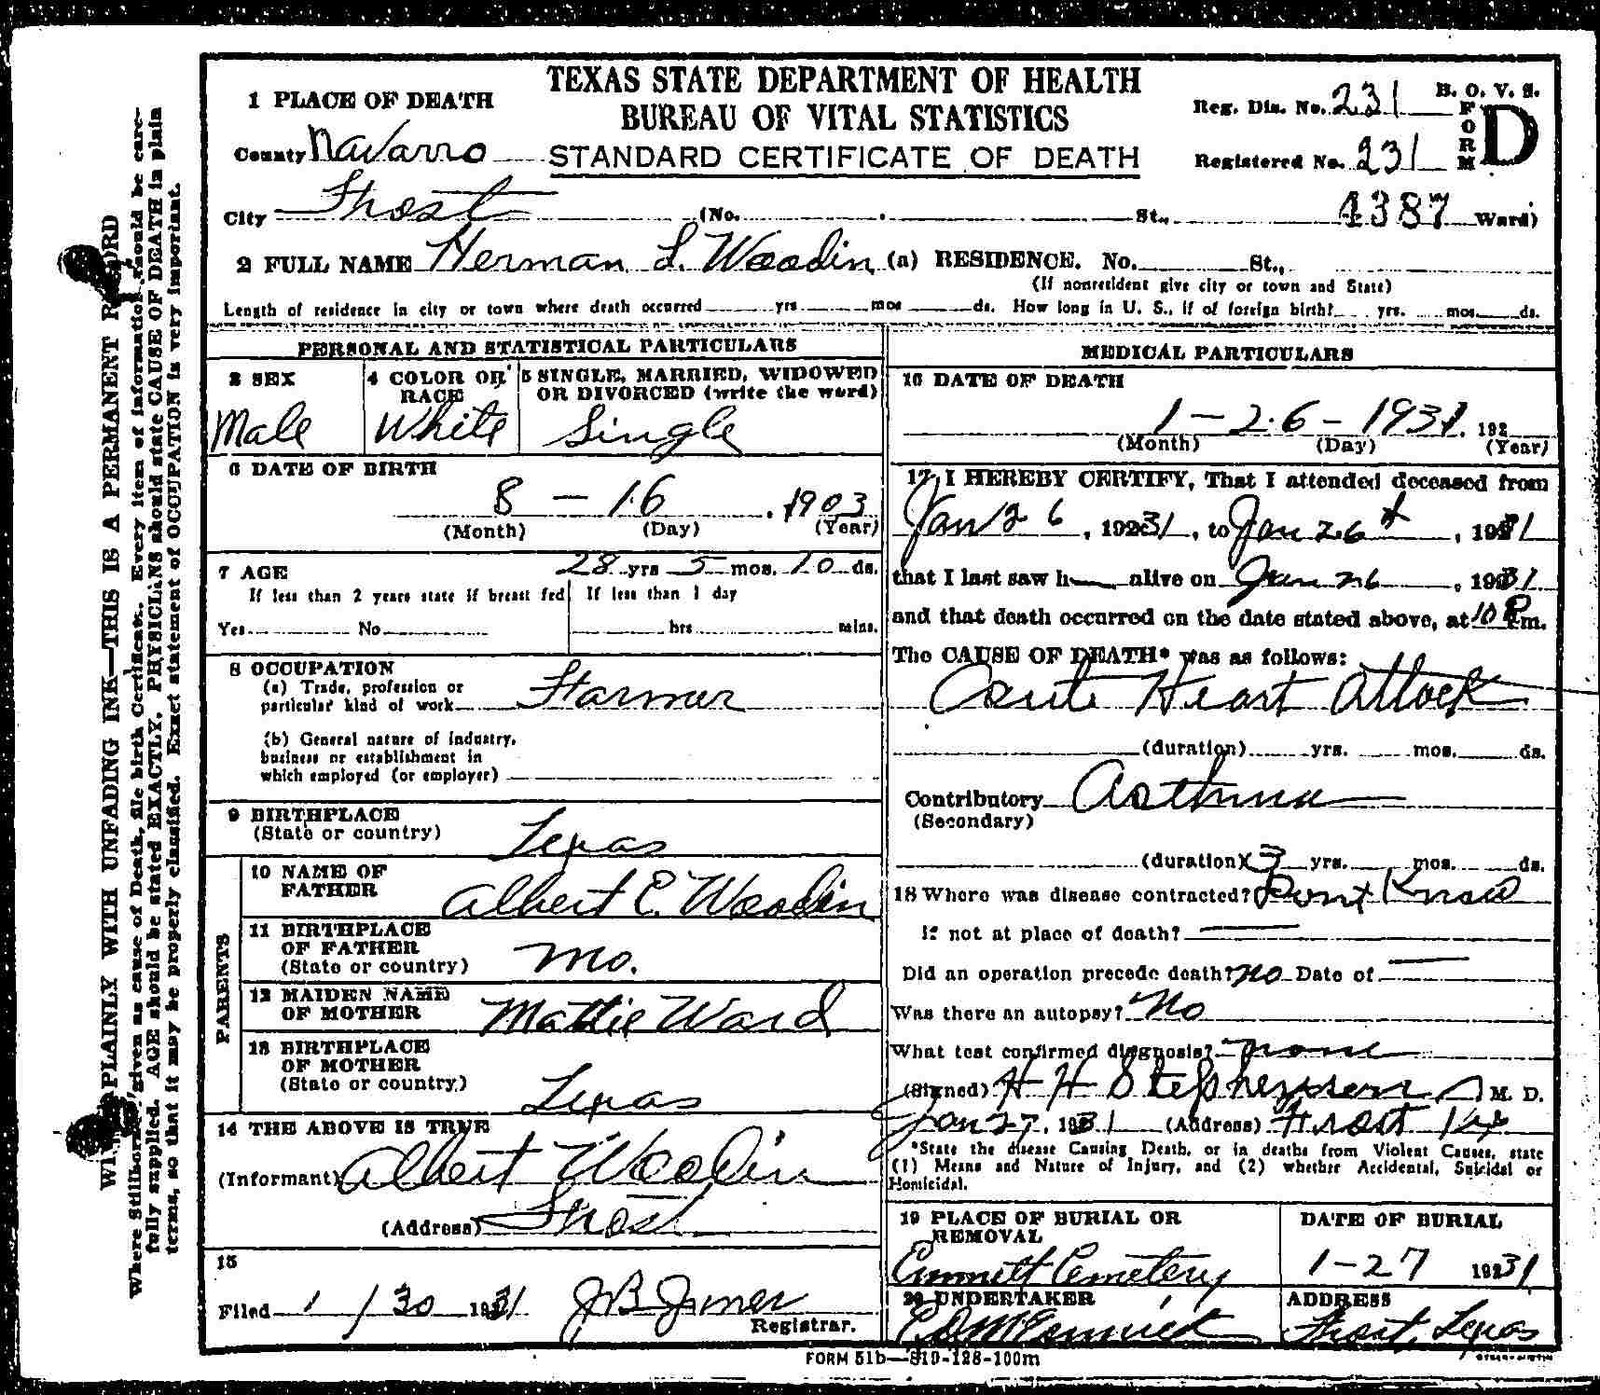 TEXAS STATE DEPARTMENT OF HEALTH
BUREAU OF VITAL STATISTICS
STANDARD CERTIFICATE OF DEATH
1 PLACE OF DEATH
County Navarro
Reg. Dis. No. 231
Registered No. 231
B. O. V. S.
FORM D
City Frost (No. St., 4387 Ward)
2 FULL NAME Herman L. Woodin (a) RESIDENCE. No. St.,
(If nonresident give city or town and State)
Length of residence in city or town where death occurred yrs mos ds. How long in U. S., if of foreign birth? yrs. mos. ds.
PERSONAL AND STATISTICAL PARTICULARS
3 SEX
Male
4 COLOR OR RACE
White
5 SINGLE, MARRIED, WIDOWED
OR DIVORCED (write the word)
Single
6 DATE OF BIRTH
8 - 16 . 1903
(Month) (Day) (Year)
7 AGE 28 yrs 5 mos. 10 ds.
If less than 2 years state if breast fed
Yes No
If less than 1 day
hrs mins.
8 OCCUPATION
(a) Trade, profession or
particular kind of work Farmer
(b) General nature of industry,
business or establishment in
which employed (or employer)
9 BIRTHPLACE
(State or country) Texas
PARENTS
10 NAME OF
FATHER Albert E. Woodin
11 BIRTHPLACE
OF FATHER
(State or country) Mo.
12 MAIDEN NAME
OF MOTHER Mattie Ward
13 BIRTHPLACE
OF MOTHER
(State or country) Texas
14 THE ABOVE IS TRUE
(Informant) Albert Woodin
(Address) Frost
15
Filed 1/30 1931
Registrar.
MEDICAL PARTICULARS
16 DATE OF DEATH
1-26-1931. 192
(Month) (Day) (Year)
17 I HEREBY CERTIFY, That I attended deceased from
Jan 26, 1931, to Jan 26, 1931
that I last saw h alive on Jan 26, 1931
and that death occurred on the date stated above, at 10 P m.
The CAUSE OF DEATH* was as follows:
Acute Heart Attack
(duration) yrs. mos. ds.
Contributory Asthma
(Secondary)
(duration) 3 yrs. mos. ds.
18 Where was disease contracted? Dont Know
If not at place of death?
Did an operation precede death? No Date of
Was there an autopsy? No
What test confirmed diagnosis? none
(Signed) H H Stephenson M. D.
Jan 27, 1931 (Address) Frost Tex
*State the disease Causing Death, or in deaths from Violent Causes, state
(1) Means and Nature of Injury, and (2) whether Accidental, Suicidal or
Homicidal.
19 PLACE OF BURIAL OR
REMOVAL
Emmett Cemetery
DATE OF BURIAL
1-27 1931
20 UNDERTAKER
McCormick
ADDRESS
Frost, Texas
FORM 51b—S10-128-100m
PLAINLY WITH UNFADING INK—THIS IS A PERMANENT RECORD
Where Stillborn given as cause of Death, file birth Certificate. Every item of information should be care-
fully supplied. AGE should be stated EXACTLY. PHYSICIANS should state CAUSE OF DEATH in plain
terms, so that it may be properly classified. Exact statement of OCCUPATION is very important.